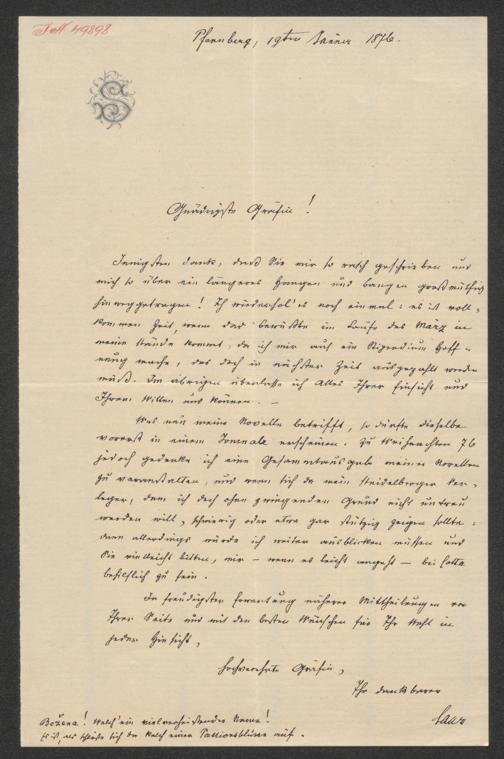 JNH 49898
Pfannberg, 19ten Jänner 1876.
S
Gnädigste Gräfin!
Innigsten Dank, daß Sie mir so rasch geschrieben und
mich so über ein längeres Hangen und Bangen großmüthig
hinweggetragen! Ich wiederhol' es noch einmal: es ist voll-
kommen Zeit, wenn das Bewußte im Laufe des März in
meine Hände kommt, da ich mir auch ein Stipendium Hoff-
nung mache, das doch in nächster Zeit ausgezahlt werden
muß. Im übrigen überlasse ich Alles Ihrer Einsicht und
Ihrem Willen und Können. –
Was nun meine Novelle betrifft, so dürfte dieselbe
vorerst in einem Journale erscheinen. Zu Weihnachten 76
jedoch gedenke ich eine Gesammtausgabe meiner Novellen
zu veranstalten, und wenn sich da mein Heidelberger Ver-
leger, dem ich doch ohne zwingenden Grund nicht untreu
werden will, schwierig oder etwa gar stützig zeigen sollte:
dann allerdings würde ich weiter ausblicken müssen und
Sie vielleicht bitten, mir – wenn es leicht angeht – bei Cotta
behilflich zu sein.
In freudigster Erwartung näherer Mittheilungen von
Ihrer Seite und mit den besten Wünschen für Ihr Wohl in
jeder Hinsicht,
hochverehrte Gräfin,
Ihr dankbarer
Saar
Božena! Welch' ein vielverheißender Name!
Es ist, als schlöße sich der Kelch einer Passionsblume auf.